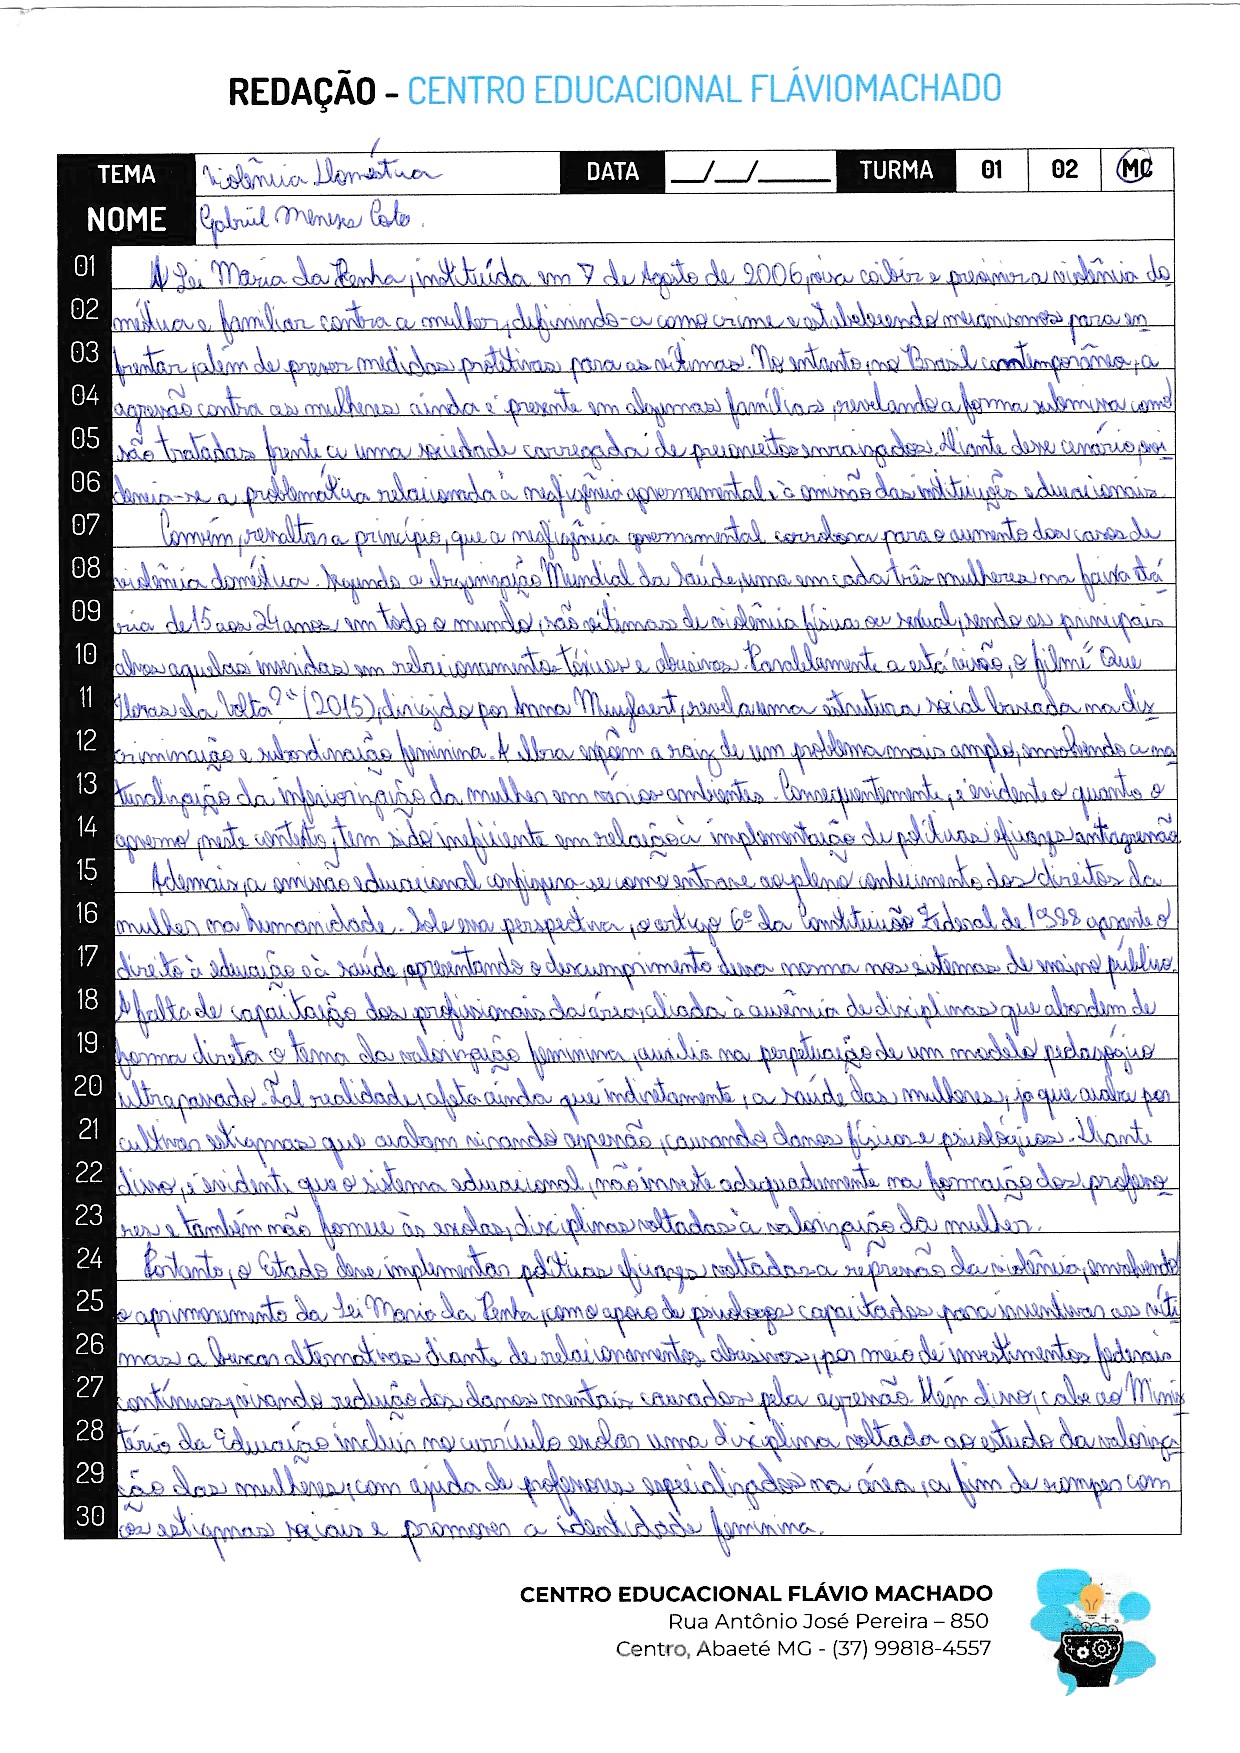 REDAÇÃO - CENTRO EDUCACIONAL FLÁVIOMACHADO
TEMA Violência Doméstica DATA __/__/____ TURMA 01 02 MC
NOME Gabriel Menezes Costa.
01 A Lei Maria da Penha, instituída em 7 de Agosto de 2006, visa coibir e prevenir a violência do
02 méstica e familiar contra a mulher, definindo-a como crime e estabelecendo mecanismos para en
03 frentar, além de prever medidas protetivas para as vítimas. No entanto, no Brasil contemporâneo, a
04 agressão contra as mulheres ainda é presente em algumas famílias, revelando a forma submissa como
05 são tratadas frente a uma sociedade carregada de preconceitos enraizados. Diante desse cenário, evi
06 dencia-se a problemática relacionada à negligência governamental e à omissão das instituições educacionais.
07 Convém, ressaltar a princípio, que a negligência governamental corrobora para o aumento dos casos de
08 violência doméstica. Segundo a Organização Mundial da Saúde, uma em cada três mulheres na faixa etá
09 ria de 15 aos 24 anos em todo o mundo, são vítimas de violência física ou sexual, sendo os principais
10 alvos aquelas inseridas em relacionamentos tóxicos e abusivos. Paralelamente a está visão, o filme "Que
11 Horas ela Volta?" (2015), dirigido por Anna Muylaert, revela uma estrutura social baseada na dis
12 criminação e subordinação feminina. A obra expõem a raiz de um problema mais amplo, envolvendo a na
13 turalização da inferiorização da mulher em vários ambientes. Consequentemente, é evidente o quanto o
14 governo, neste contexto, tem sido ineficiente em relação à implementação de políticas eficazes antiagressão
15 Ademais, a omissão educacional configura-se como entrave ao pleno conhecimento dos direitos da
16 mulher na humanidade. Sob essa perspectiva, o artigo 6º da Constituição Federal de 1988 garante o
17 direito à educação e à saúde, apresentando o descumprimento dessa norma nos sistemas de ensino público.
18 A falta de capacitação dos profissionais da área, aliada à ausência de disciplinas que abordem de
19 forma direta o tema da valorização feminina, auxilia na perpetuação de um modelo pedagógico
20 ultrapassado. Tal realidade, afeta ainda que indiretamente, a saúde das mulheres, já que acaba por
21 cultivar estigmas que acabam virando agressão, causando danos físicos e psicológicos. Diante
22 disso, é evidente que o sistema educacional, não investe adequadamente na formação dos professo
23 res e também não fornece às escolas, disciplinas voltadas à valorização da mulher.
24 Portanto, o Estado deve implementar políticas eficazes voltadas a repressão da violência, envolvendo
25 o aprimoramento da Lei Maria da Penha, como apoio de psicólogos capacitados para incentivar as víti
26 mas a buscar alternativas diante de relacionamentos abusivos, por meio de investimentos federais
27 contínuos, visando redução dos danos mentais causados pela agressão. Além disso, cabe ao Minis
28 tério da Educação incluir no currículo escolar uma disciplina voltada ao estudo da valoriza
29 ção das mulheres, com ajuda de professores especializados na área, a fim de romper com
30 os estigmas sociais e promover a identidade feminina.
CENTRO EDUCACIONAL FLÁVIO MACHADO
Rua Antônio José Pereira – 850
Centro, Abaeté MG - (37) 99818-4557